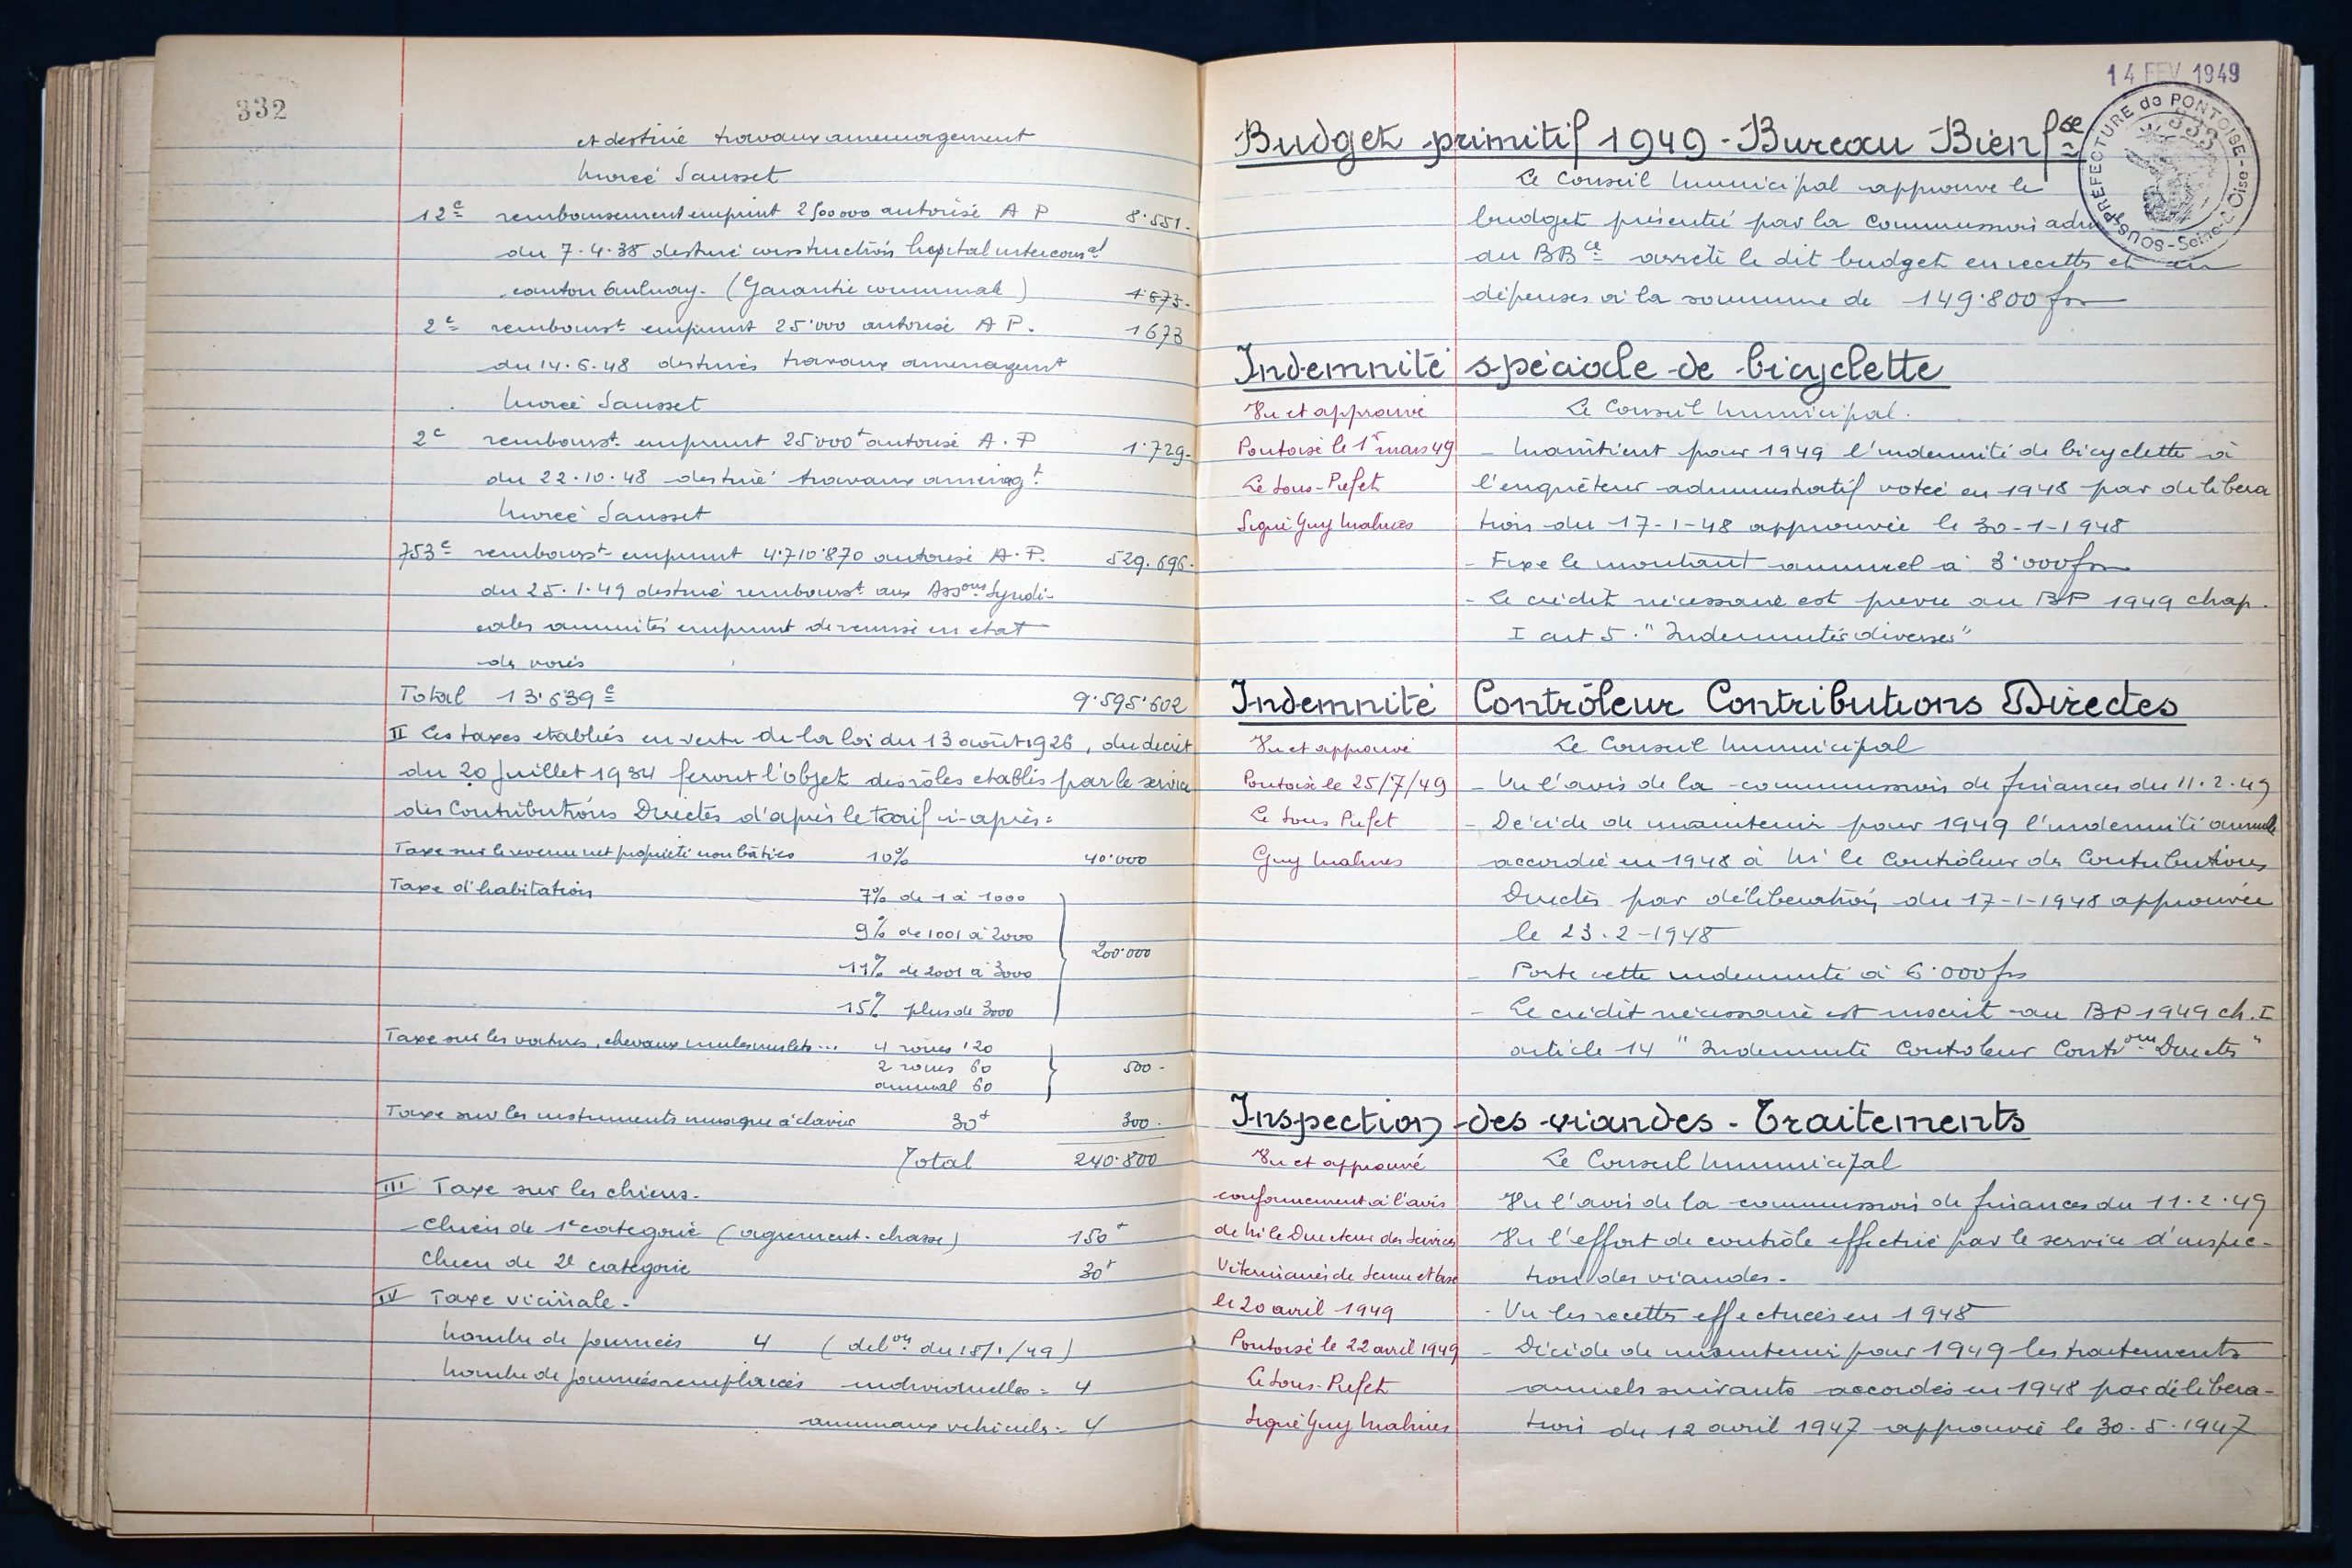 332
et destiné travaux amenagement
Murcé Sausset
12c remboursement emprunt 2500000 autorisé A P 8.551.
du 7.4.38 destiné construction hopital intercomal
canton Aulnay. (Garantie communale) 1.673.
2c rembourst emprunt 25.000 autorisé A P. 1673
du 14.6.48 destinés travaux amenagent
Murcé Sausset
2c rembourst emprunt 25.000f autorisé A.P 1.729.
du 22.10.48 destiné travaux aménagt
Murcé Sausset
753c rembourst emprunt 4.710.870 autorisé A.P. 529.696.
du 25.1.49 destiné rembourst aux Assons Syndi-
cales annuités emprunt de remise en etat
des voies
Total 13.639c 9.595.602
II Les taxes etablies en vertu de la loi du 13 août 1926, du decret
du 20 Juillet 1934 feront l'objet des rôles etablis par le service
des Contributions Directes d'après le tarif ci-après:
Taxe sur le revenu net propriété non bâties 10% 40.000
Taxe d'habitation 7% de 1 à 1000
9% de 1001 à 2000
200.000
11% de 2001 à 3000
15% plus de 3000
Taxe sur les voitures, chevaux mules mulets... 4 roues 120
2 roues 60 500.
animal 60
Taxe sur les instruments musique à clavier 30f 300.
Total 240.800
III Taxe sur les chiens.
Chien de 1e categorie (agrement-chasse) 150f
Chien de 2e categorie 30f
IV Taxe vicinale.
Nombre de journées 4 (delon du 18/1/49)
Nombre de journées remplacées individuelles = 4
animaux vehicules = 4
14 FEV 1949
SOUS-PREFECTURE de PONTOISE - Seine-&-Oise
333
Budget primitif 1949 - Bureau Bienfse
Le Conseil Municipal approuve le
budget présenté par la Commission adm
du BBce arrête le dit budget en recettes et en
dépenses à la somme de 149.800 frs
Indemnité spéciale de bicyclette
Vu et approuvé
Pontoise le 1er mars 49
Le Sous-Prefet
Signé Guy Malines
Le Conseil Municipal.
- Maintient pour 1949 l'indemnité de bicyclette à
l'enquêteur administratif votée en 1948 par delibera
tion du 17-1-48 approuvée le 30-1-1948
- Fixe le montant annuel à 3.000 frs
- Le crédit nécessaire est prevu au BP 1949 chap.
I art 5. "Indemnités diverses"
Indemnité Contrôleur Contributions Directes
Vu et approuvé
Pontoise le 25/7/49
Le Sous Prefet
Guy Malines
Le Conseil Municipal
- Vu l'avis de la commission de finances du 11.2.49
- Décide de maintenir pour 1949 l'indemnité annuelle
accordée en 1948 à Mr le Contrôleur des Contributions
Directes par délibération du 17-1-1948 approuvée
le 23.2-1948
- Porte cette indemnité à 6.000 frs
- Le crédit nécessaire est inscrit au BP 1949 ch. I
article 14 "Indemnité Controleur Contrions Directes"
Inspection des viandes - Traitements
Vu et approuvé
conformement à l'avis
de Mr le Directeur des Services
Vétérinaires de Seine et Oise
le 20 avril 1949
Pontoise le 22 avril 1949
Le Sous-Prefet
Signé Guy Malines
Le Conseil Municipal
Vu l'avis de la commission de finances du 11.2.49
Vu l'effort de contrôle effectué par le service d'inspec-
tion des viandes.
- Vu les recettes effectuées en 1948
- Décide de maintenir pour 1949 les traitements
annuels suivants accordés en 1948 par délibera-
tion du 12 avril 1947 approuvée le 30.5.1947